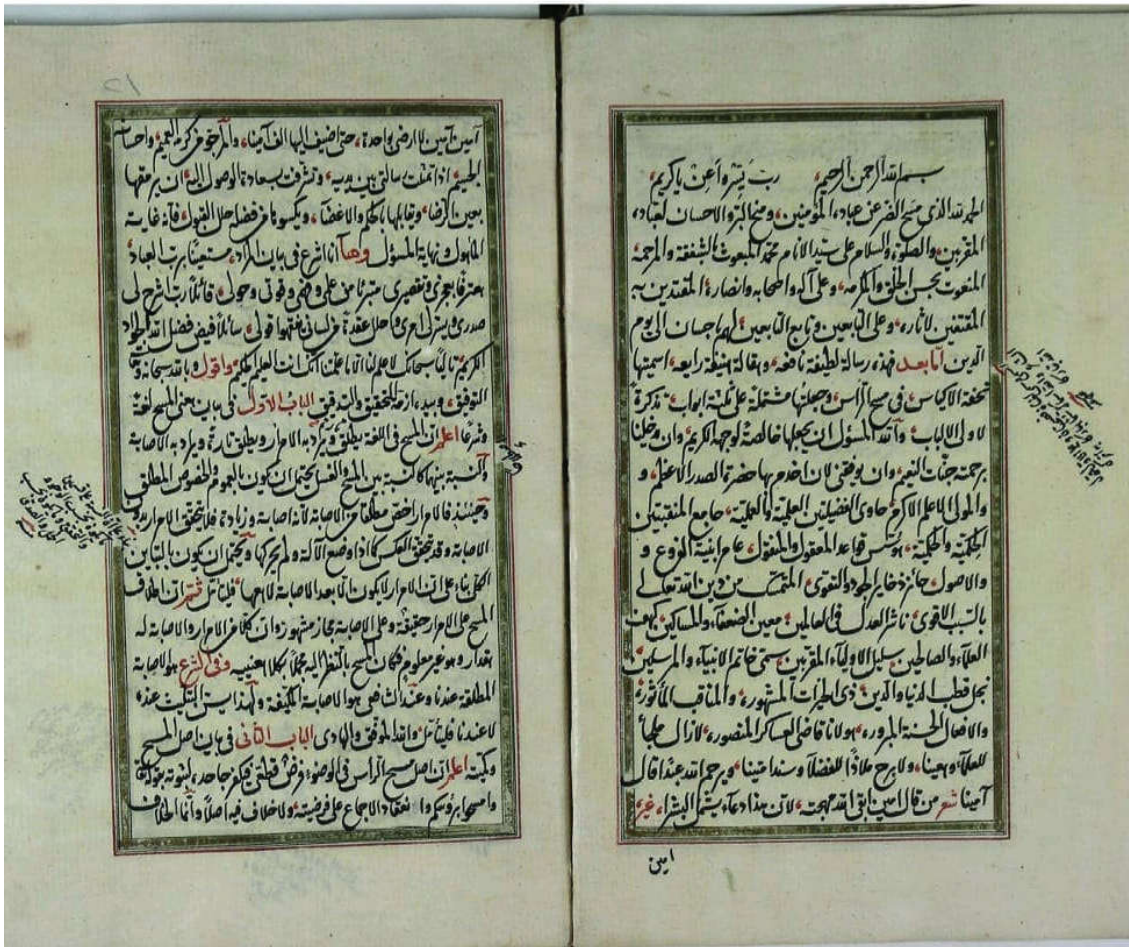 بسم الله الرحمن الرحيم، رب يسر واعن يا كريم،
الحمد لله الذي مسح الضر عن عباده المؤمنين، ومنح البر والاحسان لعباده
المقربين، والصلوة والسلام على سيد الانام محمد المبعوث بالشفقة والمرحمة
المنعوت بحسن الخلق والمكرمه، وعلى آله واصحابه وانصاره المقتدين به
المقتفين لاثاره، وعلى التابعين وتابع التابعين، لهم باحسان الى يوم
الدين اما بعد فهذه رسالة لطيفة نافعه، ومقالة منيفة رابعه، اسميتها
تحفة الاكياس، في مسح الراس، وجعلتها مشتملة على ثلثة ابواب، تذكرة
لاولي الالباب، والله المسؤل ان يجعلها خالصة لوجهه الكريم، وان يدخلنا
برحمته جنات النعيم، وان يوفقني لان اخدم بها حضرة الصدر الاعظم، و
والمولى الاعلم الاكرم، حاوي الفضيلتين العلمية والعملية، جامع المنقبتين
الحكمية والحكمية، مؤسس قواعد المعقول والمنقول، عامر ابنية الفروع و
والاصول، حائز ذخاير الجود والتقوى، المتمسك من دين الله تعالى
بالسبب الاقوى، ناشر العدل في العالمين، معين الضعفاء والمساكين، كهف
العلماء والصالحين، سليل الاولياء المقربين، سمي خاتم الانبياء والمرسلين،
نجل قطب الدنيا والدين، ذي الخيرات المشهورة، والمناقب المأثورة،
والافعال الحسنة المبرورة، مولانا قاضي العساكر المنصورة، لا زال ملجأ
للعلماء ومعينا، ولا برح ملاذا للفضلاء وسندا متينا، ويرحم الله عبدا قال
آمينا شعر من قال امين ابقى الله مهجته، لان هذا دعاء يشمل البشرا، غيره
امين
٢١
آمين آمين لا ارضى بواحدة، حتى اضيف اليها الف آمينا، والمرجو من كرمه العميم، واحسانه
الجسيم، اذا تمثلت رسالتي بين يديه، وتشرفت بسعادة الوصول اليه، ان يرمقها
بعين الرضا، ويقابلها بالحلم والاغضاء، ويكسوها من فضله حلل القبول، فانه غاية
المامول ونهاية المسؤل، وها انا اشرع في بيان المراد، مستعينا برب العباد،
معترفا بعجزي وتقصيري، متبرئا من علمي وفضلي وقوتي وحولي، قائلا رب اشرح لي
صدري ويسر لي امري واحلل عقدة من لساني يفقهوا قولي، سائلا فيض فضل الله الجواد
الكريم، تاليا سبحانك لا علم لنا الا ما علمتنا انك انت العليم الحكيم، واقول وبالله سبحانه وتعالى
التوفيق، وبيده ازمة التحقيق والتدقيق الباب الاول في بيان معنى المسح لغة
وشرعا اعلم ان المسح في اللغة يطلق ويراد به الامرار ويطلق تارة ويراد به الاصابة
والنسبة بينهما كالنسبة بين المسح والغسل يحتمل ان يكون بالعموم والخصوص المطلق
وحينئذ فالامرار اخص مطلقا من الاصابة لانه اصابة وزيادة فلا يتحقق الامرار بدون
الاصابة وقد يتحقق العكس كما اذا وضع الآلة ولم يحركها ويحتمل ان يكون بالتباين
الكلي بناء على ان الامرار لا يكون الا بعد الاصابة لا معها، فليتامل ثم ان اطلاق
المسح على الامرار حقيقة وعلى الاصابة مجاز مشهور وان كلا من الامرار والاصابة له
مقدار وهو غير معلوم فكان المسح بالنظر اليه مجملا بكلا معنييه وفي الشرع هو الاصابة
المطلقة عندنا وعند الشافعي هو الاصابة المكيفة ولهذا ليس التثليث عنده
لا عندنا فليتامل والله الموفق والهادي الباب الثاني في بيان اصل المسح
وكميته اعلم ان اصل مسح الراس في الوضوء فرض قطعي يكفر جاحده، لثبوته بقوله تعالى
وامسحوا برؤسكم وانعقاد الاجماع على فرضيته ولا خلاف فيه اصلا وانما الخلاف